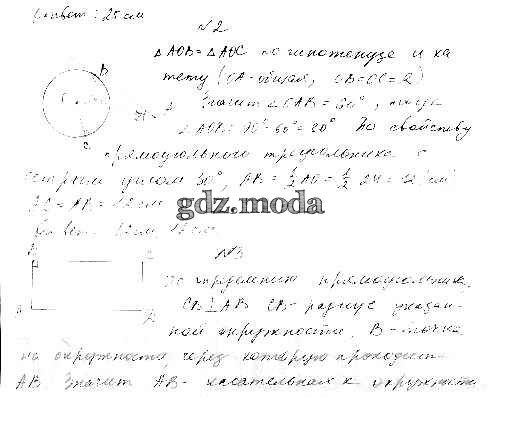 Ответ: 25 см
№2
△AOB = △AOC по гипотенузе и ка-
тету (OA - общая, OB = OC = R)
B
Значит ∠OAB = 60°, тогда
∠AOB = 90° - 60° = 30° По свойству
C
прямоугольного треугольника с
острым углом 30°, AB = 1/2 AO = 1/2 · 24 = 12 (см)
AC = AB = 12 см
gdz.moda
Ответ: 12 см, 12 см
№3
По определению прямоугольника
CB ⊥ AB CB - радиус указан-
ной окружности. B - точка
на окружности, через которую проходит
AB. Значит AB - касательная к окружности